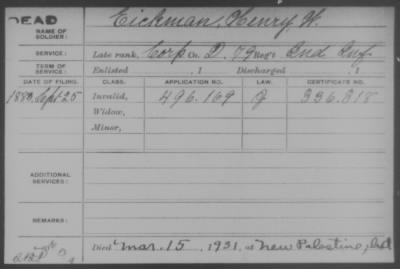 DEAD
NAME OF SOLDIER:
Eickman, Henry W.
SERVICE:
Late rank, Corp Co. D. 79 Reg't Ind Inf
TERM OF SERVICE:
Enlisted , 1 Discharged , 1
DATE OF FILING. CLASS. APPLICATION NO. LAW. CERTIFICATE NO.
Sept 25 Invalid, 496.169 336.818
Widow,
Minor,
ADDITIONAL SERVICES:
REMARKS:
Died Mar. 15, 1931, at New Palestine, Ind